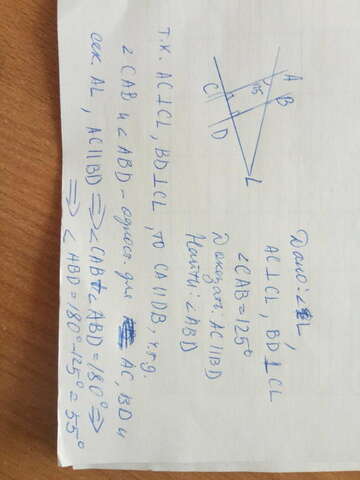 Дано: ∠L,
AC⊥CL, BD⊥CL
∠CAB=125°
Доказать: AC||BD
Найти: ∠ABD
A
B
C
D
L
125
Т.К. AC⊥CL, BD⊥CL, то CA||DB, ч.т.д.
∠CAB и ∠ABD - однос. для AC, BD и
сек AL, AC||BD ⟹ ∠CAB+∠ABD=180° ⟹
⟹ ∠ABD=180°-125°=55°